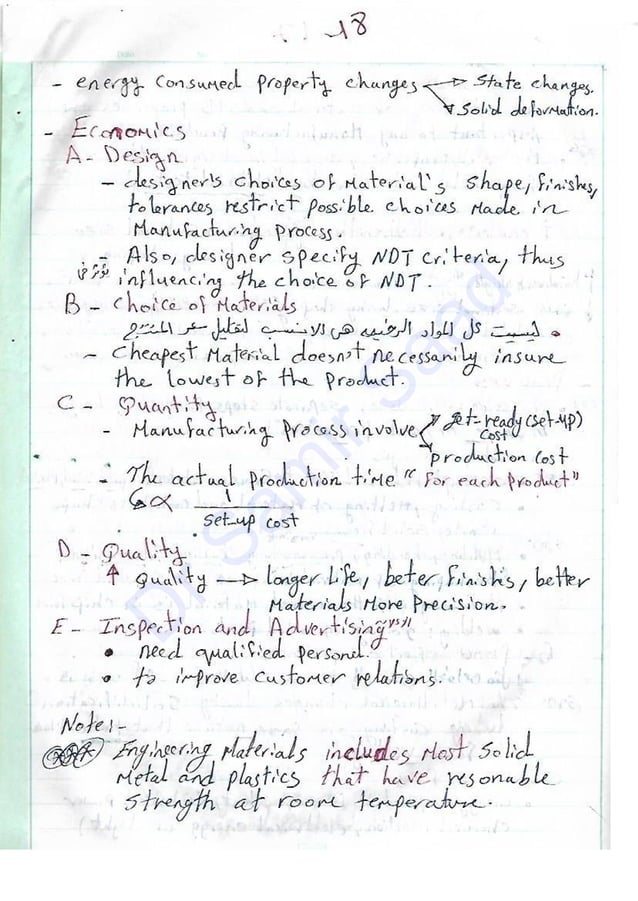 18
- energy consumed property changes → State changes.
↘ Solid deformation.
- Economics
A - Design
- designer's choices of Material's shape, finishes,
tolerances restrict possible choices Made in
Manufacturing process.
- Also, designer specify NDT criteria, thus
influencing the choice of NDT.
B - Choice of Materials
• ليست كل المواد الرخيصه هى الانسب لتقليل سعر المنتج
- Cheapest Material doesn't necessarily insure
the lowest of the product.
C - Quantity
- Manufacturing Process involve ↗ get-ready (set-up)
cost
↘ production cost
- The actual production time " For each product"
↳ ∝ 1
set-up cost
D - Quality
↑ Quality → longer life, beter finishs, better
Materials More Precision.
E - Inspection and Advertising
• need qualified personel.
• to improve customer relations.
Note:-
Engineering Materials includes Most Solid
Metal and plastics that have resonable
strength at room temperature.
Dr Samir Saad